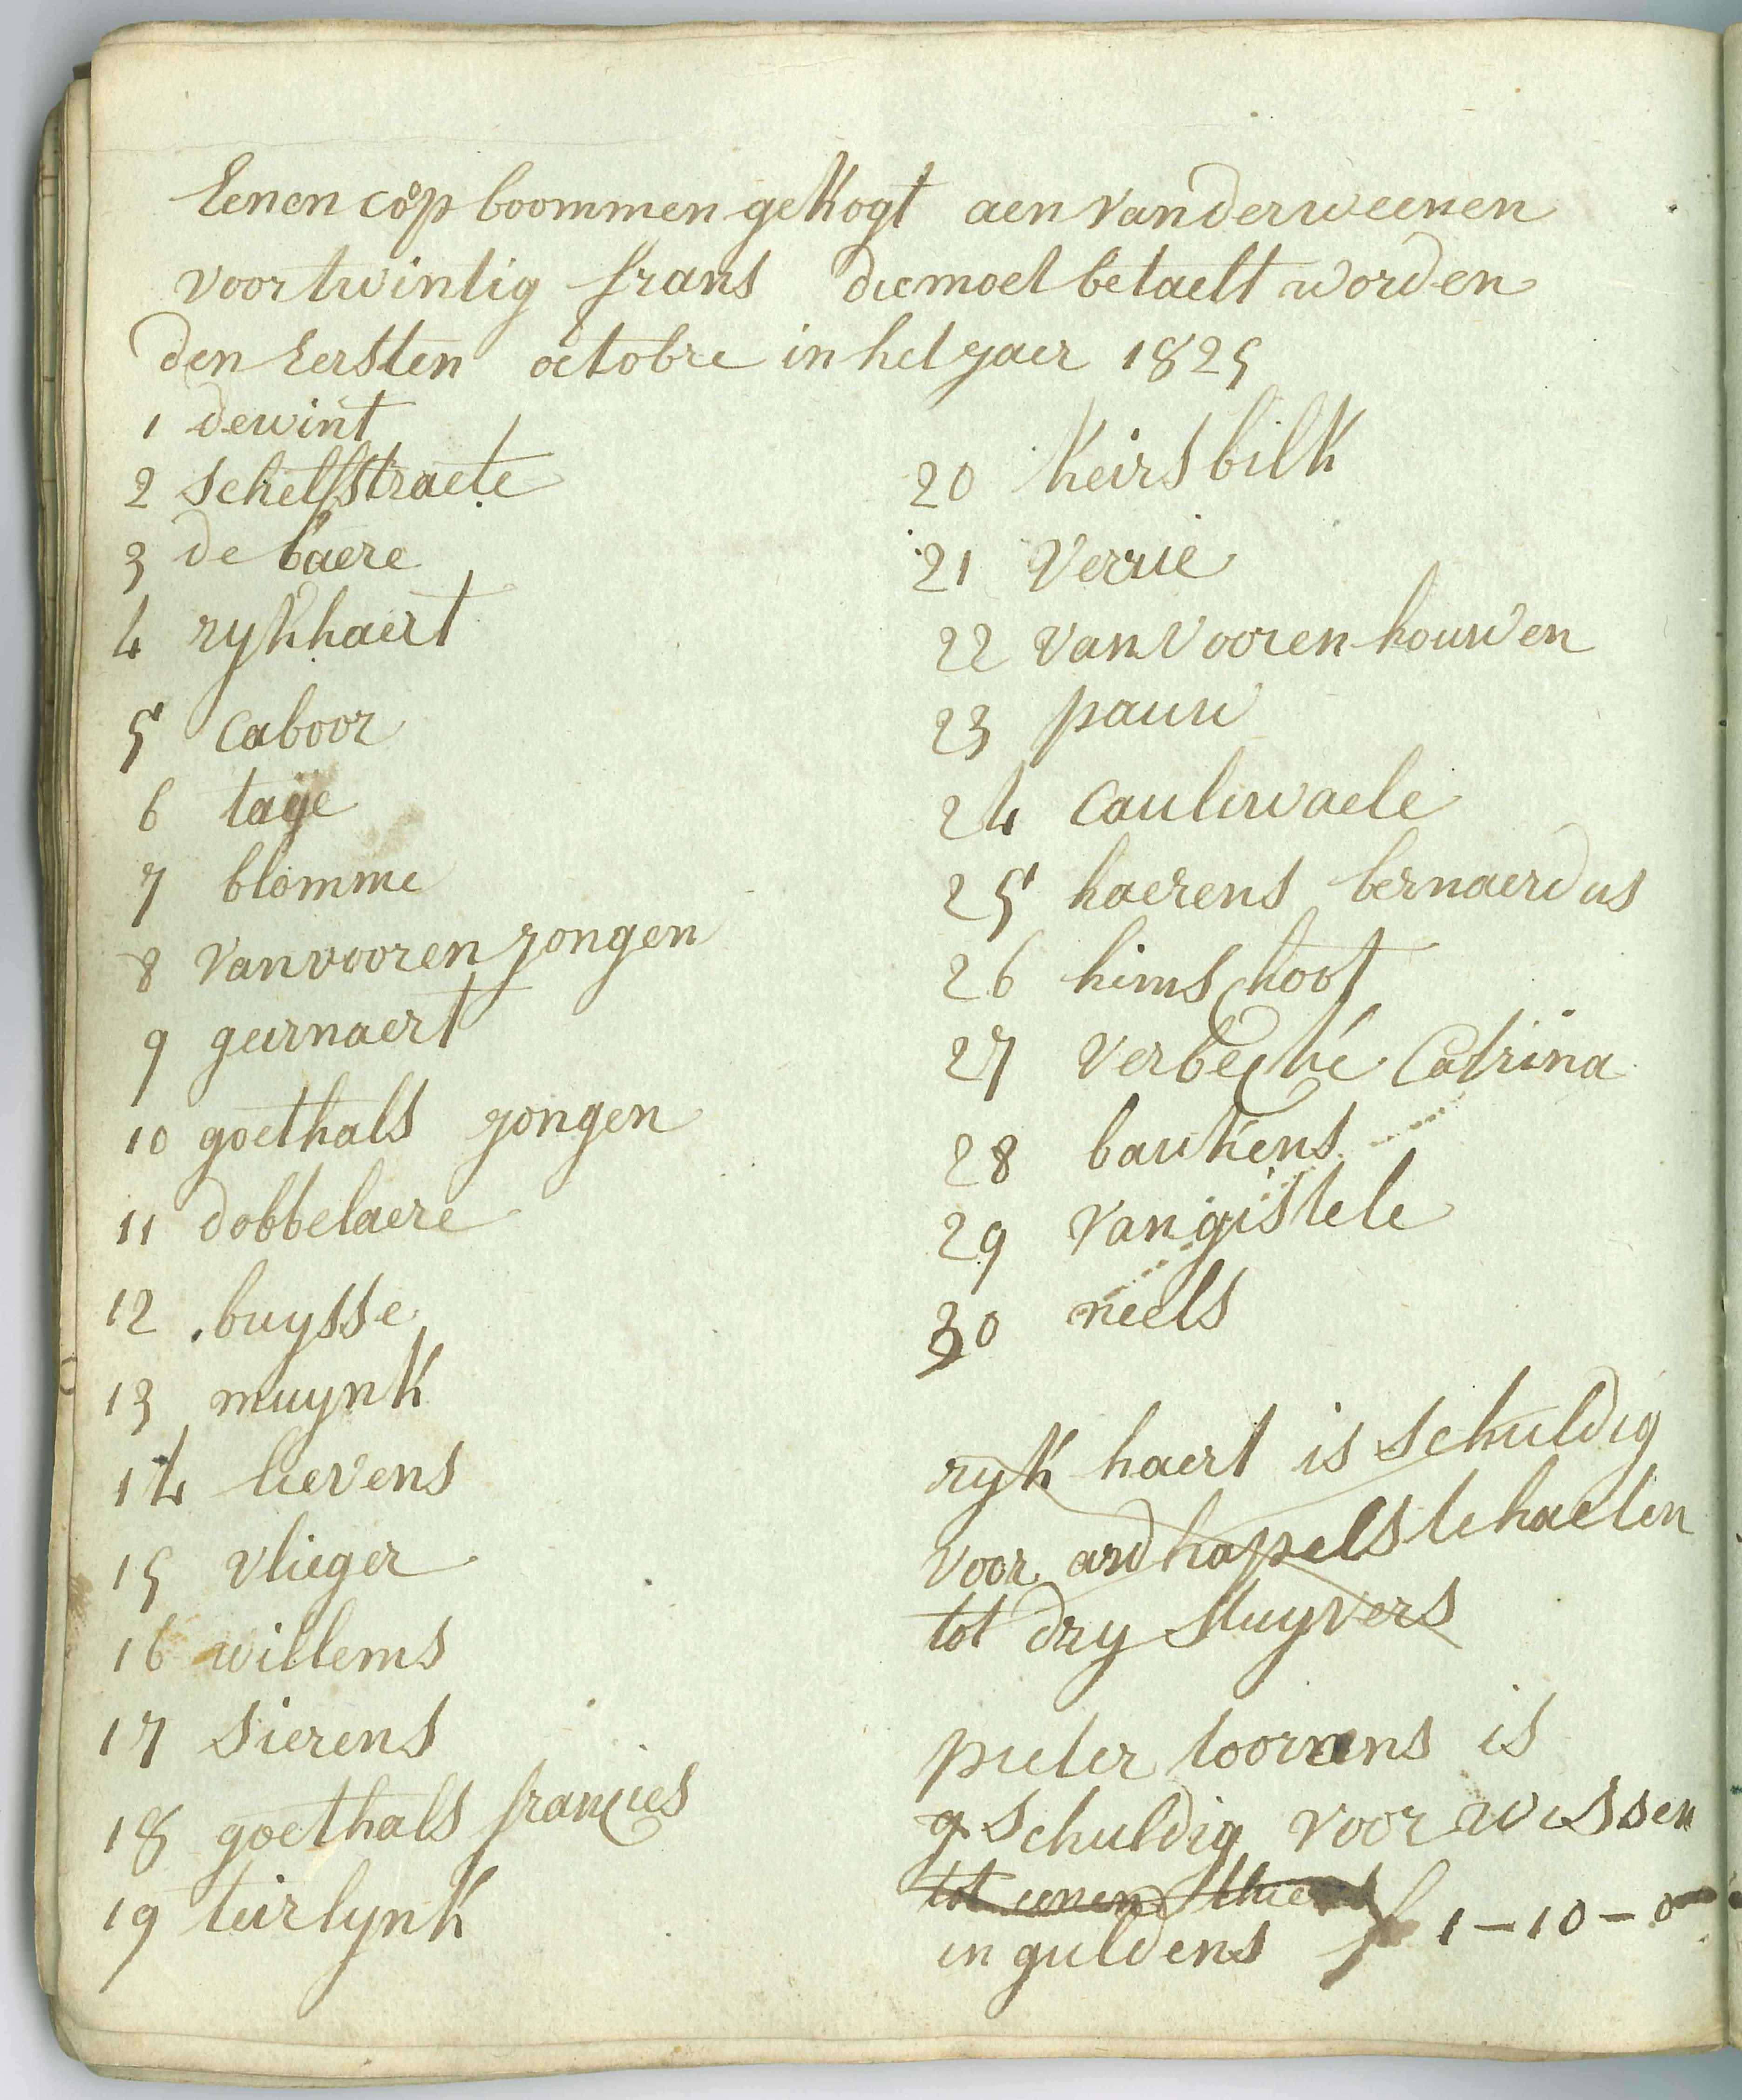 Eenen cóp boommen gekogt aen vanderweenen
voor twintig frans die moet betaelt worden
den Eersten octobre in het yaer 1825
1 dewint
2 schelfstraete
3 de baere
4 rykhaert
5 caboor
6 taÿe
7 blomme
8 vanvooren yongen
9 geirnaert
10 goethals yongen
11 dobbelaere
12 buysse
13 muynk
14 lievens
15 vlieger
16 willems
17 sierens
18 goethals francies
19 teirlynk
20 keirsbilk
21 verrie
22 vanvooren houwen
23 pauw
24 cauliwaele
25 haerens bernaerdus
26 himschoot
27 verbecké Catrina
28 baukens
29 vangistele
30 neels
ryk haert is schuldig
voor ardhapels te haelen
tot dry stuyvers
pieter toorens is
schuldig voor wissen
tot eenen
in guldens f 1-10-0